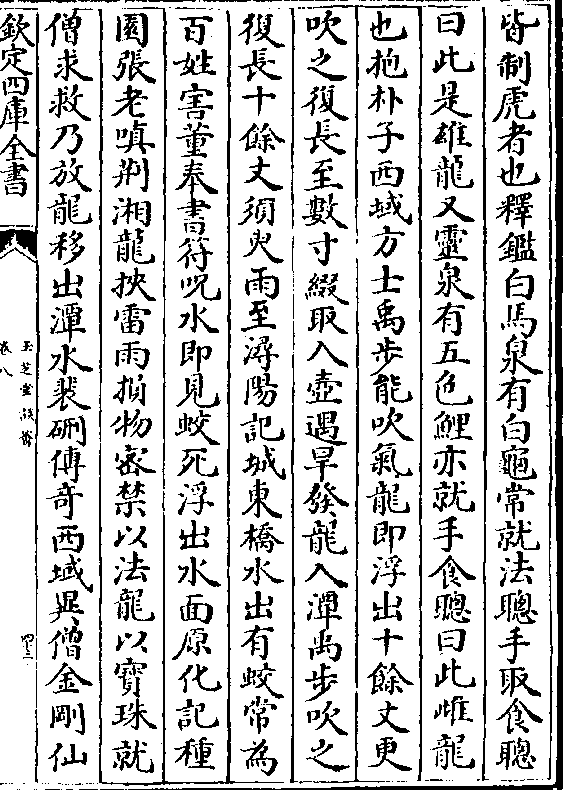 皆制虎者也釋鑑白馬泉有白龜常就法聰手取食聰
曰此是雄龍又靈泉有五色鯉亦就手食聰曰此雌龍
也抱朴子西域方士禹步能吹氣龍即浮出十餘丈更
吹之復長至數寸綴取入壺遇旱發龍入潭禹步吹之
復長十餘丈須臾雨至潯陽記城東橋水出有蛟常為
百姓害董奉書符呪水即見蛟死浮出水面原化記種
園張老嗔荆湘龍挾雷雨損物密禁以法龍以寶珠就
僧求救乃放龍移出潭水裴鉶傳奇西域異僧金剛仙
欽定四庫全書
玉芝堂談薈
卷八
四三